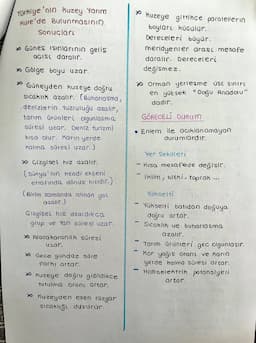 Türkiye'nin Kuzey Yarım
Küre'de Bulunmasının
Sonuçları
Güneş ışınlarının geliş
açısı daralır.
Gölge boyu uzar.
Güneyden kuzeye doğru
sıcaklık azalır. (Buharlaşma,
denizlerin tuzluluğu azalır,
tarım ürünleri olgunlaşma
süresi uzar. Deniz turizmi
kısa olur. Karın yerde
kalma süresi uzar.)
Çizgisel hız azalır.
(Dünya'nın kendi ekseni
etrafında dönüş hızıdır.)
(Birim zamanda alınan yol
azalır.)
Çizgisel hız azaldıkça
gurup ve tan süresi uzar.
süresi
uzar.
Gece gündüz süre
farkı artar.
Kuzeye doğru gidildikçe
tutulma oranı artar.
Kuzeyden esen rüzgar
sıcaklığı düşürür
Kuzeye gittikçe paralellerin
boyları küçülür.
Dereceleri büyür.
meridyenler arası mesafe
daralır. Dereceleri
değişmez.
Orman yerleşme üst sınırı
en yüksek "Doğu Anadolu"
dadır.
GÖRECELİ DURUM
Enlem ile açıklanamayan
durumlardır.
Yer Şekilleri
- Kısa mesafede değişir.
- İklim, bitki, toprak ...
Yükselti
- Yükselti batıdan doğuya
doğru artar.
- Sıcaklık ve buharlaşma
azalır.
- Tarım ürünleri geç olgunlaşır.
- Kar yağışı oranı ve karın
yerde kalma süresi artar.
- Hidroelektrik potansiyeli
artar.